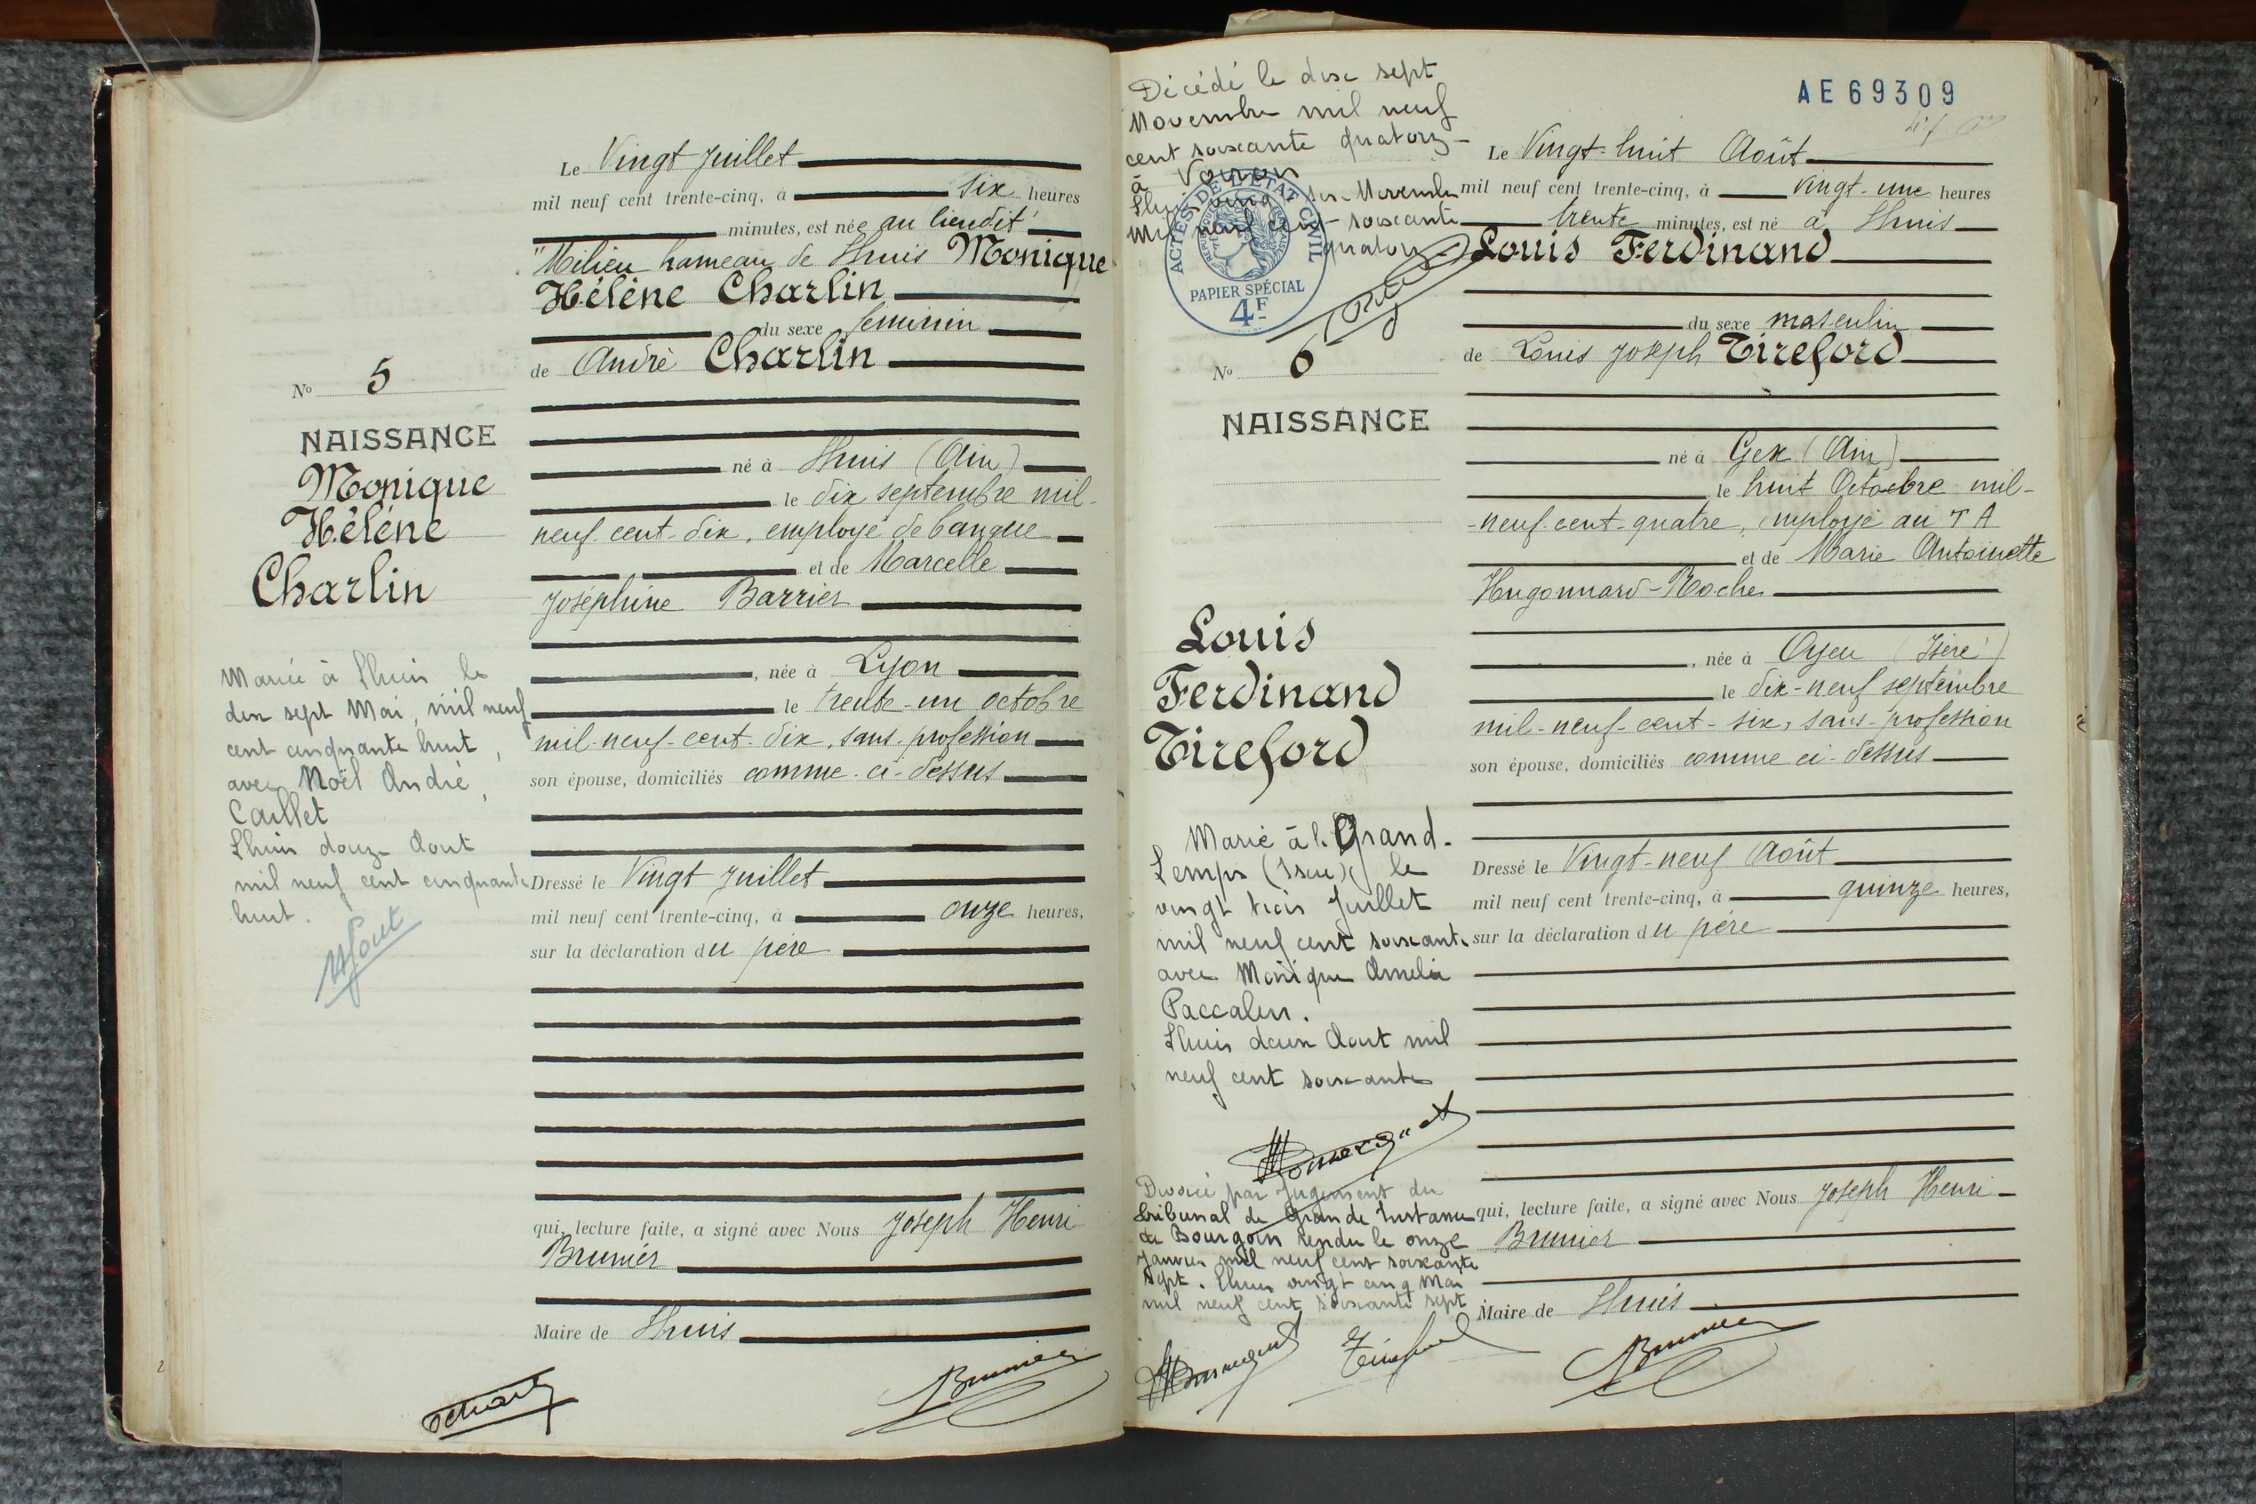 Le Vingt Juillet
mil neuf cent trente-cinq, à six heures
minutes, est née au lieudit
"Milieu hameau de Lhuis Monique
Hélène Charlin
du sexe feminin
de André Charlin
né à Lhuis (Ain)
le dix septembre mil-
neuf-cent-dix, employé de banque
et de Marcelle
Joséphine Barrier
, née à Lyon
le trente-un octobre
mil-neuf-cent-dix, sans-profession
son épouse, domiciliés comme-ci-dessus
Dressé le Vingt Juillet
mil neuf cent trente-cinq, à onze heures,
sur la déclaration du père
qui, lecture faite, a signé avec Nous Joseph Henri
Brunier
Maire de Lhuis
Brunier
No 5
NAISSANCE
Monique
Hélène
Charlin
Mariée à Lhuis le
dix sept Mai, mil neuf
cent cinquante huit,
avec Noël André,
Caillet
Lhuis douze Aout
mil neuf cent cinquante
huit.
AE69309
Décédé le dix sept
Novembre mil neuf
cent soixante quatorz-
à Voiron
Lhuis vingt six Novembre
mil neuf cent soixante
quatorz
ACTES DE L'ETAT CIVIL
PAPIER SPÉCIAL
4F
No 6
NAISSANCE
Louis
Ferdinand
Tireford
Marié à l. Grand-
Lemps (Isère) le
vingt trois Juillet
mil neuf cent soixante
avec Monique Amelia
Paccalin.
Lhuis deux Aout mil
neuf cent soixante
Divorcé par Jugement du
tribunal de Grande Instance
de Bourgoin rendu le onze
Janvier mil neuf cent soixante
sept. Lhuis vingt cinq Mai
mil neuf cent soixante sept
Le Vingt-huit Août
mil neuf cent trente-cinq, à vingt-une heures
trente minutes, est né à Lhuis
Louis Ferdinand
du sexe masculin
de Louis Joseph Tireford
né à Gex (Ain)
le huit Octobre mil-
-neuf-cent-quatre, employé au T A
et de Marie Antoinette
Hugonnard-Roche
, née à Oyeu (Isère)
le dix-neuf septembre
mil-neuf-cent-six, sans-profession
son épouse, domiciliés comme ci-dessus
Dressé le Vingt-neuf Août
mil neuf cent trente-cinq, à quinze heures,
sur la déclaration du père
qui, lecture faite, a signé avec Nous Joseph Henri
Brunier
Maire de Lhuis
Tireford
Brunier